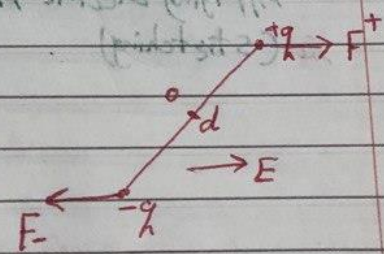 +q F+
o
d
E
-q
F-